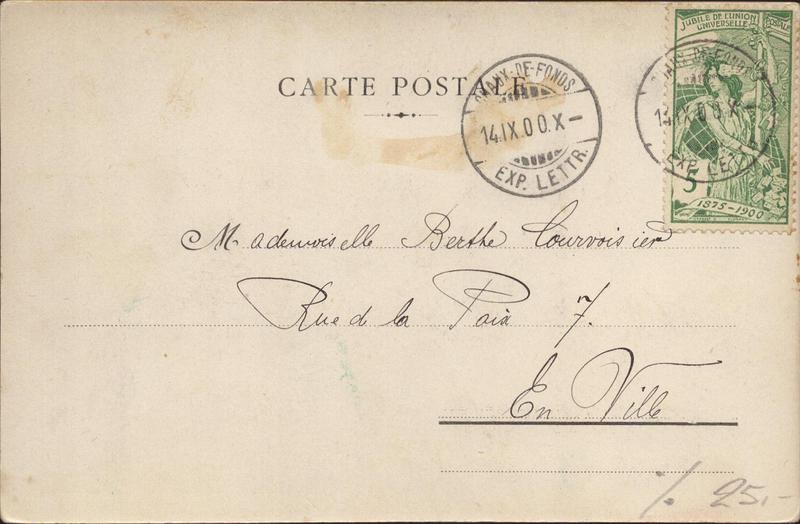 JUBILÉ DE L'UNION POSTALE
UNIVERSELLE
CARTE POSTALE
CHAUX-DE-FONDS
14.IX.00.X-
EXP. LETTR.
CHAUX-DE-FONDS
14.IX.00.X-
EXP. LETTR.
5
1875-1900
Mademoiselle Berthe Courvoisier
Rue de la Paix 7.
En Ville
/. 25.-